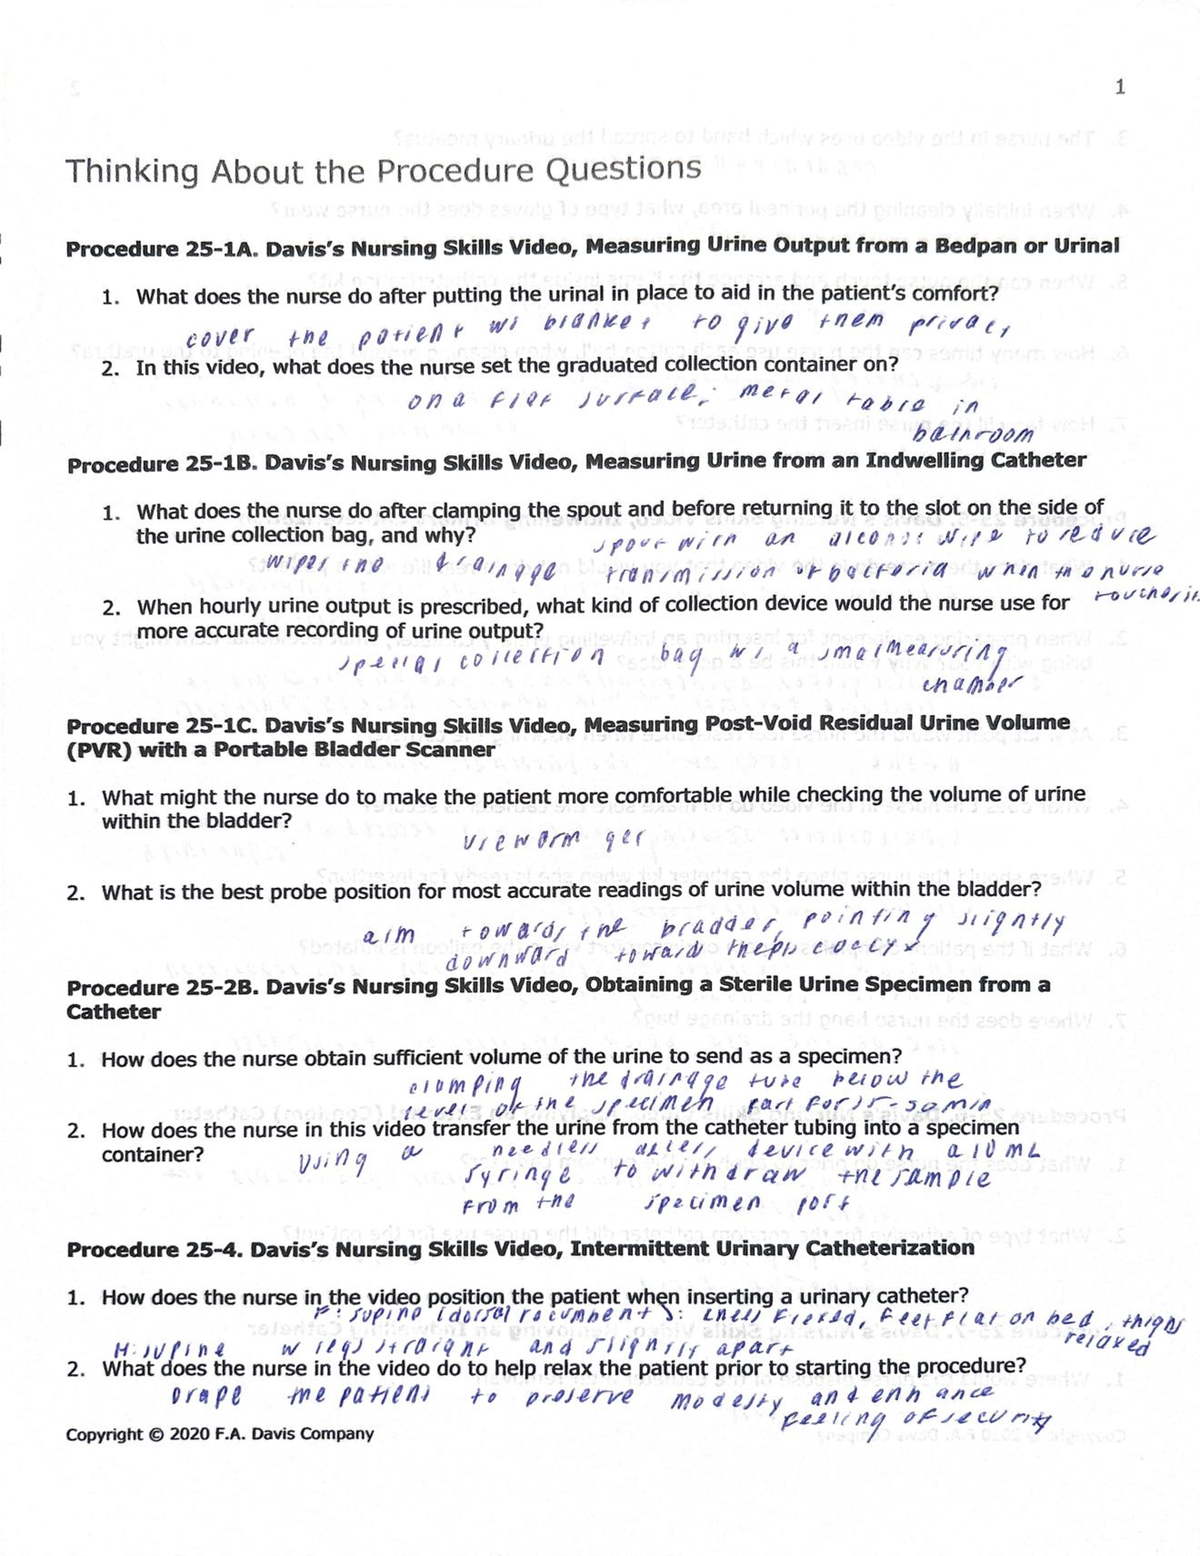 1
Thinking About the Procedure Questions
Procedure 25-1A. Davis's Nursing Skills Video, Measuring Urine Output from a Bedpan or Urinal
1. What does the nurse do after putting the urinal in place to aid in the patient's comfort?
cover the patient w/ blanket to give them privacy
2. In this video, what does the nurse set the graduated collection container on?
on a flat surface; metal table in
bathroom
Procedure 25-1B. Davis's Nursing Skills Video, Measuring Urine from an Indwelling Catheter
1. What does the nurse do after clamping the spout and before returning it to the slot on the side of
the urine collection bag, and why?
wipes the drainage spout with an alcohol wipe to reduce
transmission of bacteria when the nurse
touches it
2. When hourly urine output is prescribed, what kind of collection device would the nurse use for
more accurate recording of urine output?
special collection bag w/ a small measuring
chamber
Procedure 25-1C. Davis's Nursing Skills Video, Measuring Post-Void Residual Urine Volume
(PVR) with a Portable Bladder Scanner
1. What might the nurse do to make the patient more comfortable while checking the volume of urine
within the bladder?
use warm gel
2. What is the best probe position for most accurate readings of urine volume within the bladder?
aim towards the bladder, pointing slightly
downward toward the coccyx
Procedure 25-2B. Davis's Nursing Skills Video, Obtaining a Sterile Urine Specimen from a
Catheter
1. How does the nurse obtain sufficient volume of the urine to send as a specimen?
clamping the drainage tube below the
level of the specimen port for 15-30 min
2. How does the nurse in this video transfer the urine from the catheter tubing into a specimen
container?
Using a needless access device with a 10 mL
syringe to withdraw the sample
from the specimen port
Procedure 25-4. Davis's Nursing Skills Video, Intermittent Urinary Catheterization
1. How does the nurse in the video position the patient when inserting a urinary catheter?
F: supine (dorsal recumbent): knees flexed, feet flat on bed, thighs
relaxed
M: supine w legs straight and slightly apart
2. What does the nurse in the video do to help relax the patient prior to starting the procedure?
Drape the patient to preserve modesty and enhance
feeling of security
Copyright © 2020 F.A. Davis Company